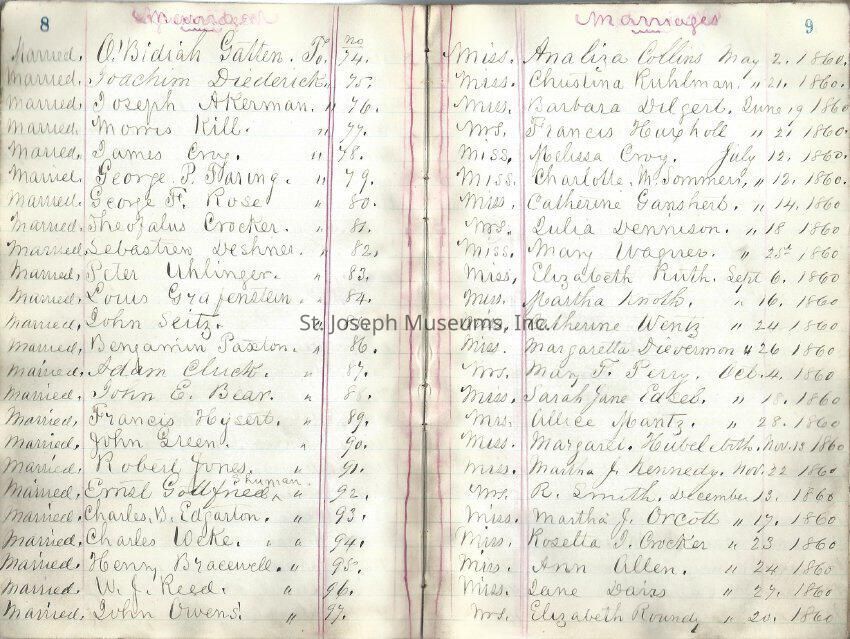 8 Marriages Marriages 9
no
Married, O'Bidiah Gatten. To. 74. Miss. Analiza Collins May 2. 1860.
Married, Joachim Diederick " 75. Miss. Christina Ruhlman. " 21. 1860.
Married, Joseph Akerman. " 76. Miss. Barbara Dilgert. June 19 1860
Married, Morris Kill. " 77. Mrs. Francis " 21 1860.
Married, James Croy. " 78. Miss, Melissa Croy. July 12. 1860.
Married, George P. " 79. Miss. Charlotte, M. Sommers, " 12. 1860.
Married, George F. Rose " 80. Miss, Catherine Ganshert. " 14. 1860.
Married, Crocker. " 81. Mrs. Julia Dennison. " 18 1860
Married, Sebastien Deshner. " 82, Miss. Mary Wagner. " 25 1860
Married, Peter Uhlinger. " 83. Miss, Elizabeth Ruth. Sept 6. 1860
Married, Louis Grafenstein. " 84. Miss. Martha Knoth. " 16. 1860
Married, John Seitz. Catherine Wentz " 24 1860
St. Joseph Museums, Inc.
Married, Benjamin Paxton. " 86. Miss. Margaretta Dievermon " 26 1860
Married, Adam Cluck. " 87. Mrs. Mary F. Perry. Oct. 4. 1860
Married, John E. Bear. " 88. Miss. Sarah Jane " 18. 1860
Married, Francis " 89. Mrs. Allice Mantz. " 28. 1860
Married, John Green. " 90. Miss. Margaret. Nov. 13 1860
Married, Robert Jones. " 91. Miss. Martha J. Kennedy. Nov. 22 1860
Married, Ernst Gottfried " 92. Mrs. R. Smith. December 13. 1860
Married, Charles, B. Edgarton. " 93. Miss. Martha J. Orcott " 17. 1860
Married, Charles " " 94. Miss. Rosetta I. Crocker " 23 1860
Married, Henry Bracewell. " 95. Miss. Ann Allen. " 24. 1860
Married, W. J. Reed. " 96. Miss. Jane Davis " 27. 1860
Married, John Owens. " 97. Mrs. Elizabeth Roundy " 20. 1860